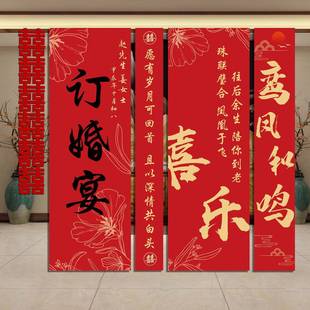 囍
赵先生 姜女士
甲辰年十月初八
订婚宴
囍 愿有岁月可回首 且以深情共白头 囍
往后余生 陪你到老
珠联璧合 凤凰于飞
喜乐
鸾凤和鸣